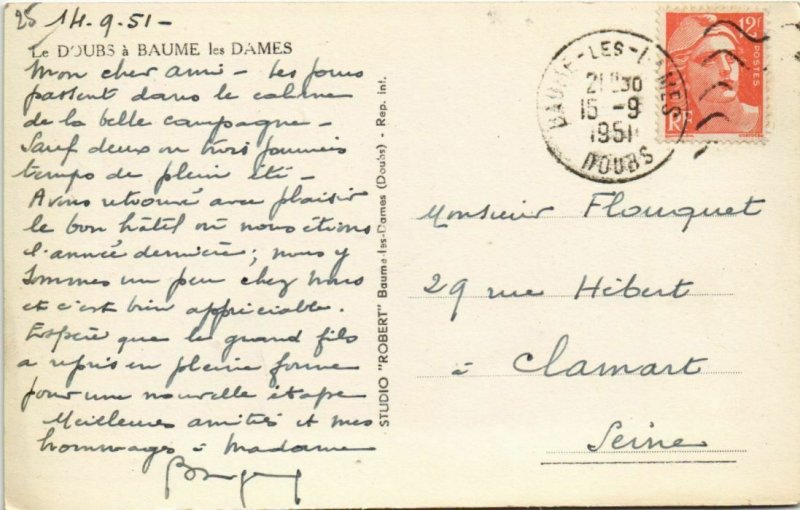 25 14.9.51-
Le DOUBS à BAUME les DAMES
Mon cher ami - Les jours
passent dans le calme
de la belle campagne -
Sauf deux ou trois journées
temps de plein été -
Avons retrouvé avec plaisir
le bon hôtel où nous étions
l'année dernière ; nous y
sommes un peu chez nous
et c'est bien appréciable.
Espère que le grand fils
a repris en pleine forme
pour une nouvelle étape
Meilleures amitiés et mes
hommages à Madame
STUDIO "ROBERT" Baume-les-Dames (Doubs) - Rep. int.
BAUME-LES-DAMES
21H30
15-9
1951
DOUBS
12F
POSTES
RF
Monsieur Flouquet
29 rue Hébert
à Clamart
Seine